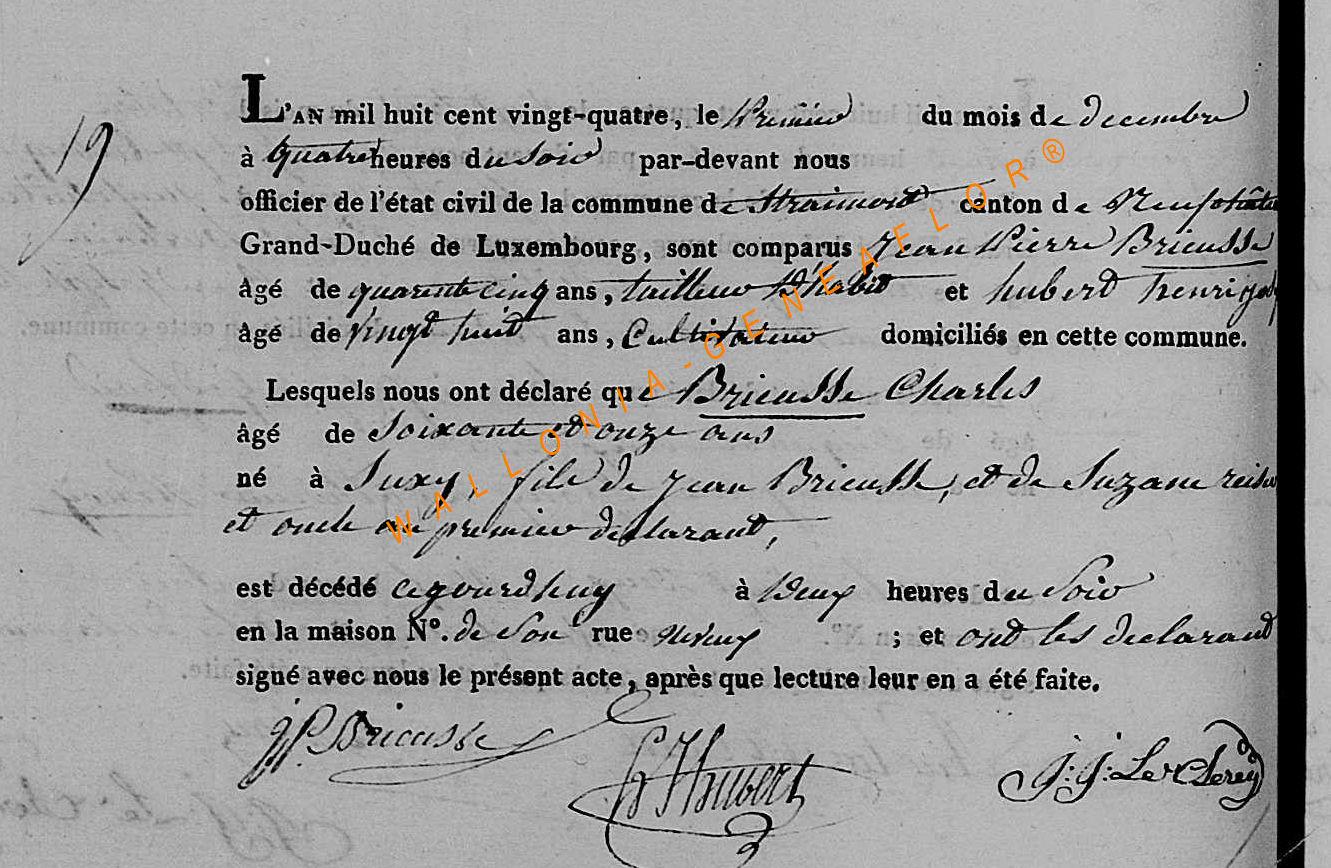 19
L'AN mil huit cent vingt-quatre, le premier du mois de decembre
à quatre heures du soir par-devant nous
officier de l'état civil de la commune de Straimont canton de Neufchâteau
Grand-Duché de Luxembourg, sont comparus Jean Pierre Bricusse
âgé de quarente cinq ans, tailleur d'habit et hubert henri
âgé de vingt huit ans, Cultivateur domiciliés en cette commune.
Lesquels nous ont déclaré que Bricusse Charles
âgé de Soixante et onze ans
né à Suxy, fils de Jean Bricusse, et de Suzane
et oncle au premier déclarant,
est décédé à deux heures du Soir
en la maison N°. de son rue ; et ont les declarant
signé avec nous le présent acte, après que lecture leur en a été faite.
JP. Bricusse
Hubert
J: J: Le Clerey
WALLONIA-GENEAFLOR®